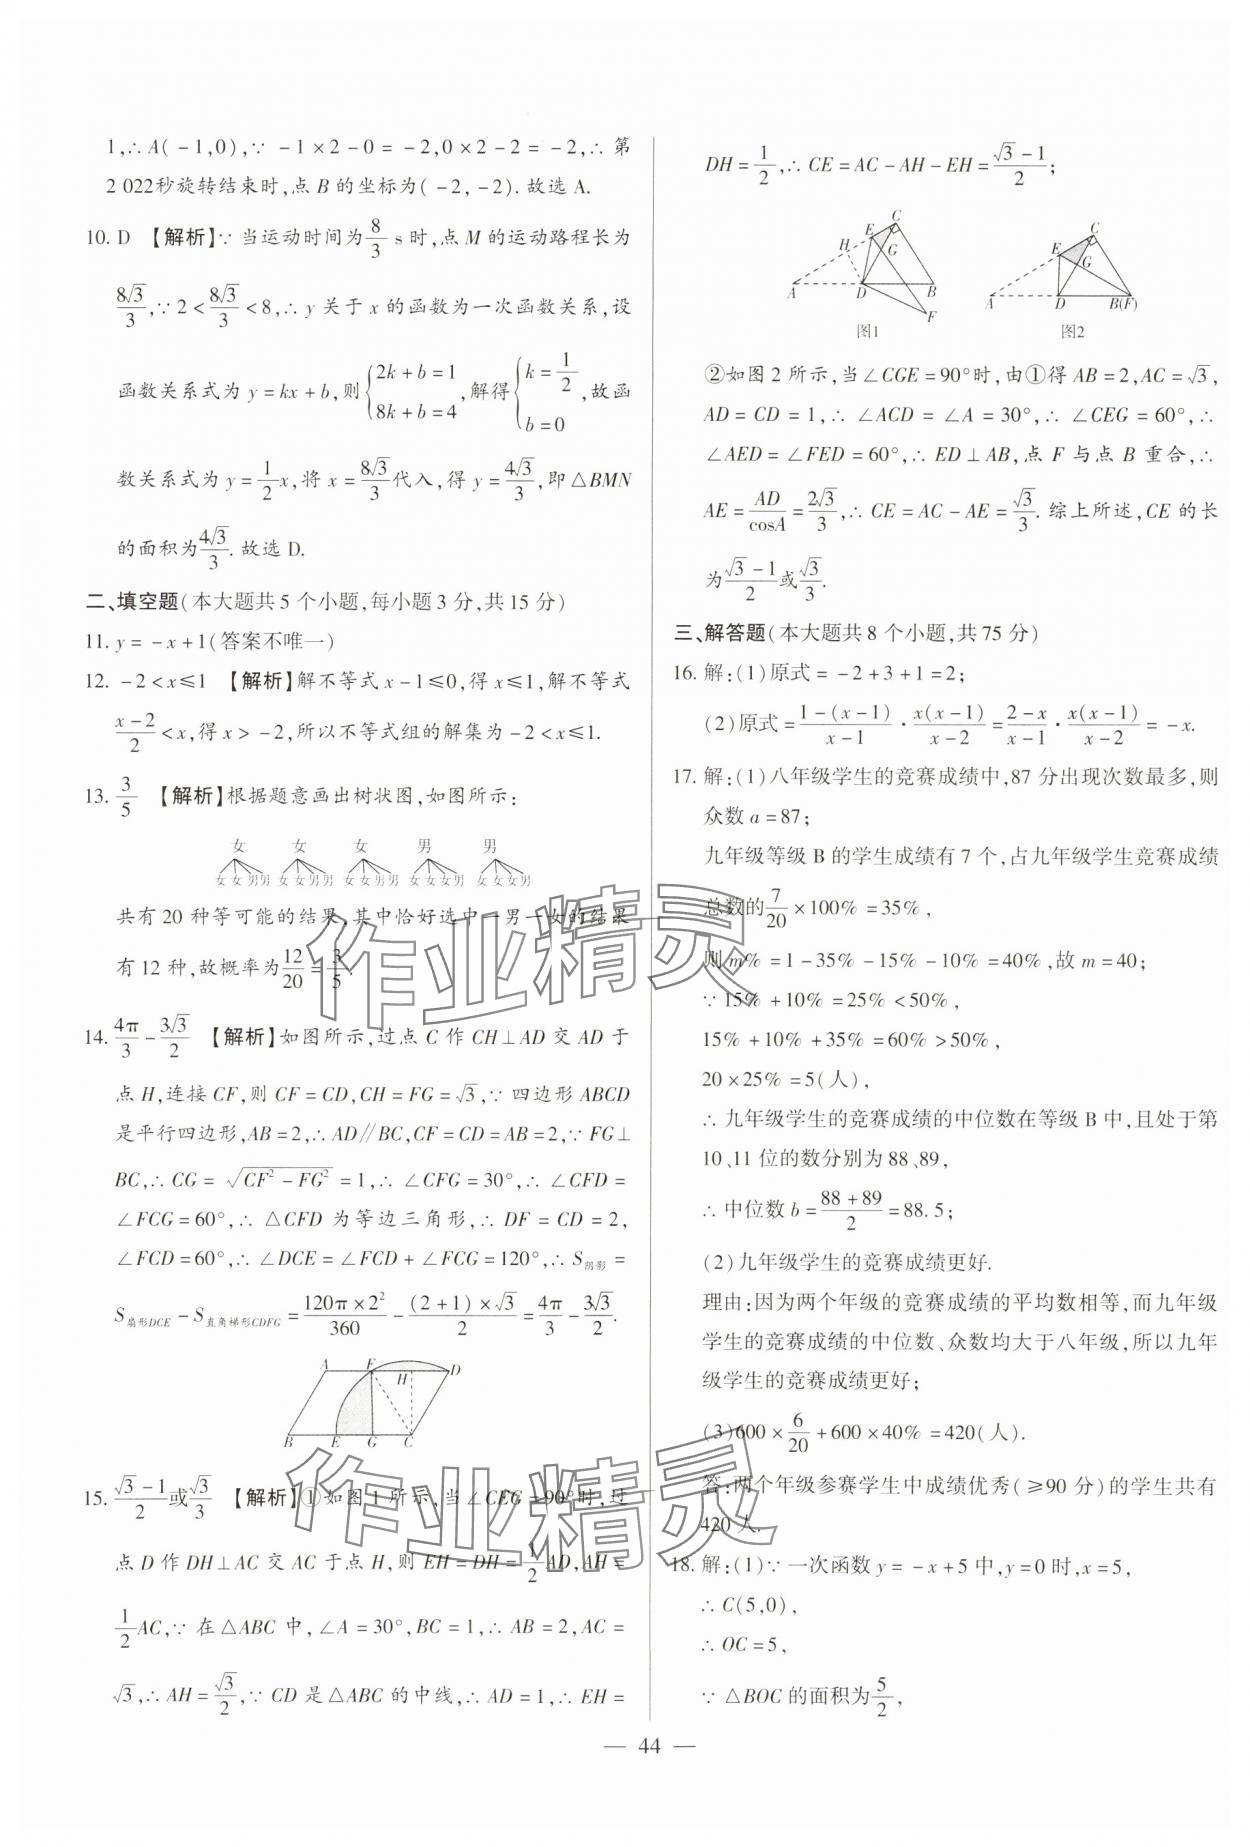 1,∴A(-1,0),∵ -1×2-0=-2,0×2-2=-2,∴第
2 022秒旋转结束时,点 B 的坐标为(-2,-2).故选 A.
10. D 【解析】∵当运动时间为8/3 s时,点 M 的运动路程长为
8√3/3,∵2<8√3/3<8,∴y 关于 x 的函数为一次函数关系,设
函数关系式为 y=kx+b,则{2k+b=1 8k+b=4,解得{k=1/2 b=0,故函
数关系式为 y=1/2x,将 x=8√3/3代入,得 y=4√3/3,即△BMN
的面积为4√3/3.故选 D.
二、填空题(本大题共 5 个小题,每小题 3 分,共 15 分)
11. y=-x+1(答案不唯一)
12. -2<x≤1 【解析】解不等式 x-1≤0,得 x≤1,解不等式
x-2/2<x,得 x>-2,所以不等式组的解集为-2<x≤1.
13. 3/5 【解析】根据题意画出树状图,如图所示:
女 女 女 男 男
女女男男 女女男男 女女男男 女女女男 女女女男
共有 20 种等可能的结果,其中恰好选中一男一女的结果
有 12 种,故概率为12/20=3/5.
14. 4π/3-3√3/2 【解析】如图所示,过点 C 作 CH⊥AD 交 AD 于
点 H,连接 CF,则 CF=CD,CH=FG=√3,∵四边形 ABCD
是平行四边形,AB=2,∴AD∥BC,CF=CD=AB=2,∵FG⊥
BC,∴CG=√CF²-FG²=1,∴∠CFG=30°,∴∠CFD=
∠FCG=60°,∴△CFD 为等边三角形,∴DF=CD=2,
∠FCD=60°,∴∠DCE=∠FCD+∠FCG=120°,∴S阴影=
S扇形DCE-S直角梯形CDFG=120π×2²/360-(2+1)×√3/2=4π/3-3√3/2.
A F H D
B E G C
15. √3-1/2或√3/3 【解析】①如图 1 所示,当∠CEG=90°时,过
点 D 作 DH⊥AC 交 AC 于点 H,则 EH=DH=1/2AD,AH=
1/2AC,∵在△ABC 中,∠A=30°,BC=1,∴AB=2,AC=
√3,∴AH=√3/2,∵CD 是△ABC 的中线,∴AD=1,∴EH=
DH=1/2,∴CE=AC-AH-EH=√3-1/2;
A H E C G D B F
图1
A E C G D B(F)
图2
②如图 2 所示,当∠CGE=90°时,由①得 AB=2,AC=√3,
AD=CD=1,∴∠ACD=∠A=30°,∴∠CEG=60°,∴
∠AED=∠FED=60°,∴ED⊥AB,点 F 与点 B 重合,∴
AE=AD/cosA=2√3/3,∴CE=AC-AE=√3/3.综上所述,CE 的长
为√3-1/2或√3/3.
三、解答题(本大题共 8 个小题,共 75 分)
16. 解:(1)原式=-2+3+1=2;
(2)原式=1-(x-1)/x-1·x(x-1)/x-2=2-x/x-1·x(x-1)/x-2=-x.
17. 解:(1)八年级学生的竞赛成绩中,87 分出现次数最多,则
众数 a=87;
九年级等级 B 的学生成绩有 7 个,占九年级学生竞赛成绩
总数的7/20×100%=35%,
则 m%=1-35%-15%-10%=40%,故 m=40;
∵15%+10%=25%<50%,
15%+10%+35%=60%>50%,
20×25%=5(人),
∴九年级学生的竞赛成绩的中位数在等级 B 中,且处于第
10、11 位的数分别为 88、89,
∴中位数 b=88+89/2=88.5;
(2)九年级学生的竞赛成绩更好.
理由:因为两个年级的竞赛成绩的平均数相等,而九年级
学生的竞赛成绩的中位数、众数均大于八年级,所以九年
级学生的竞赛成绩更好;
(3)600×6/20+600×40%=420(人).
答:两个年级参赛学生中成绩优秀(≥90 分)的学生共有
420 人.
18. 解:(1)∵一次函数 y=-x+5 中,y=0 时,x=5,
∴C(5,0),
∴OC=5,
∵△BOC 的面积为5/2,
— 44 —
作业精灵
作业精灵